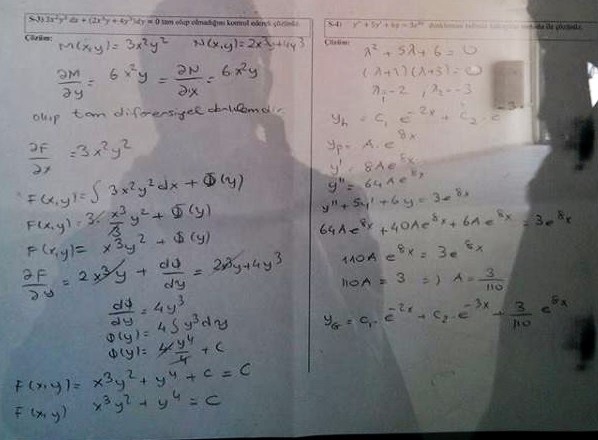 S-3) 3x²y² dx + (2x³y + 4y³)dy = 0 tam olup olmadığını kontrol ederek çözünüz.
Çözüm:
M(x,y) = 3x²y² N(x,y) = 2x³y + 4y³
∂M/∂y = 6x²y = ∂N/∂x = 6x²y
olup tam diferensiyel denklemdir.
∂F/∂x = 3x²y²
F(x,y) = ∫ 3x²y² dx + Φ(y)
F(x,y) = 3·x³/3 y² + Φ(y)
F(x,y) = x³y² + Φ(y)
∂F/∂y = 2x³y + dΦ/dy = 2x³y + 4y³
dΦ/dy = 4y³
Φ(y) = 4∫y³dy
Φ(y) = 4·y⁴/4 + C
F(x,y) = x³y² + y⁴ + C = C
F(x,y) x³y² + y⁴ = C
S-4) y'' + 5y' + 6y = 3e⁸ˣ
Çözüm:
λ² + 5λ + 6 = 0
(λ+2)(λ+3) = 0
λ₁ = -2, λ₂ = -3
yₕ = C₁ e⁻²ˣ + C₂ · e⁻³ˣ
yₚ = A · e⁸ˣ
y' = 8Ae⁸ˣ
y'' = 64Ae⁸ˣ
y'' + 5y' + 6y = 3e⁸ˣ
64Ae⁸ˣ + 40Ae⁸ˣ + 6Ae⁸ˣ = 3e⁸ˣ
110A e⁸ˣ = 3e⁸ˣ
110A = 3 =) A = 3/110
y_G = C₁ · e⁻²ˣ + C₂ · e⁻³ˣ + 3/110 e⁸ˣ